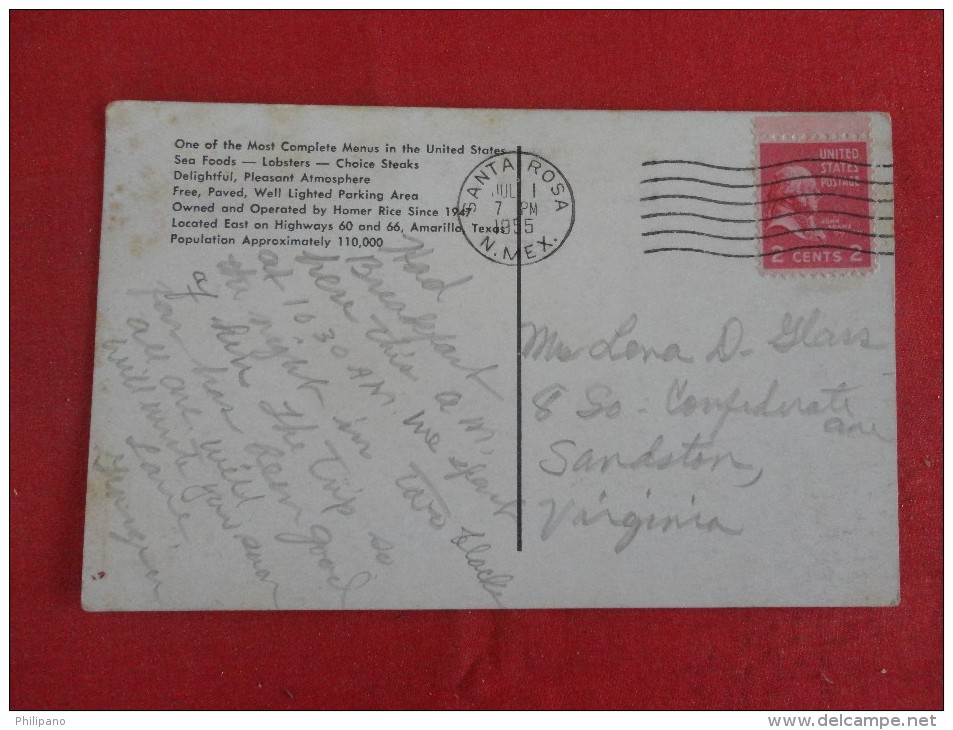 One of the Most Complete Menus in the United States
Sea Foods — Lobsters — Choice Steaks
Delightful, Pleasant Atmosphere
Free, Paved, Well Lighted Parking Area
Owned and Operated by Homer Rice Since 1947
Located East on Highways 60 and 66, Amarillo, Texas
Population Approximately 110,000
SANTA ROSA
JUL 1
7 PM
1955
N. MEX.
UNITED
STATES
POSTAGE
2 CENTS 2
Had
Breakfast
here this a m,
at 10 30 AM. we spent
the night in two
of The trip so
far has been good
all are well
will write you soon
Love,
Mrs Lena D. Glass
8 So. Confederate
ave
Sandston,
Virginia
Philipano
www.delcampe.net